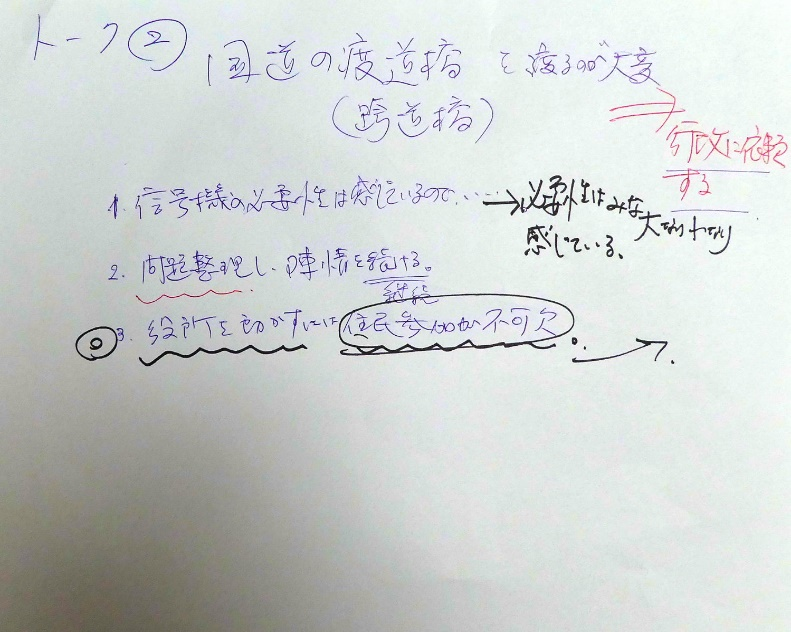 トーク②
国道の渡道橋を渡るのが大変
(跨道橋)
⇒ 行政に依頼
する
1. 信号機の必要性は感じているので、… → 必要性はみな大なり小なり
感じている。
2. 問題整理し、陳情を続ける。
継続
◎ 3. 役所を動かすには住民参加が不可欠。